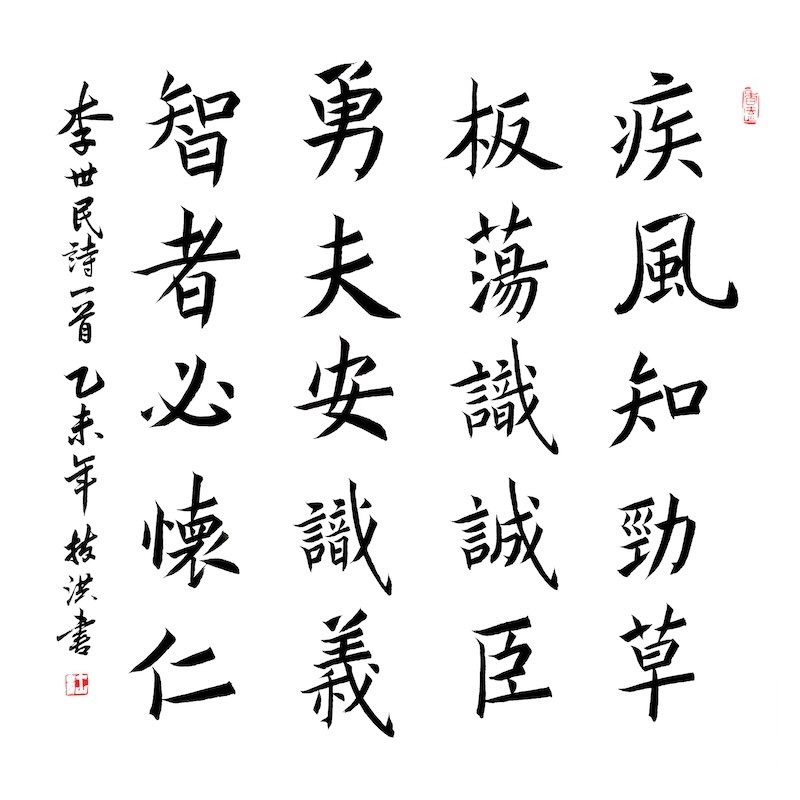 疾風知勁草
板蕩識誠臣
勇夫安識義
智者必懷仁
李世民詩一首乙未年枝洪書